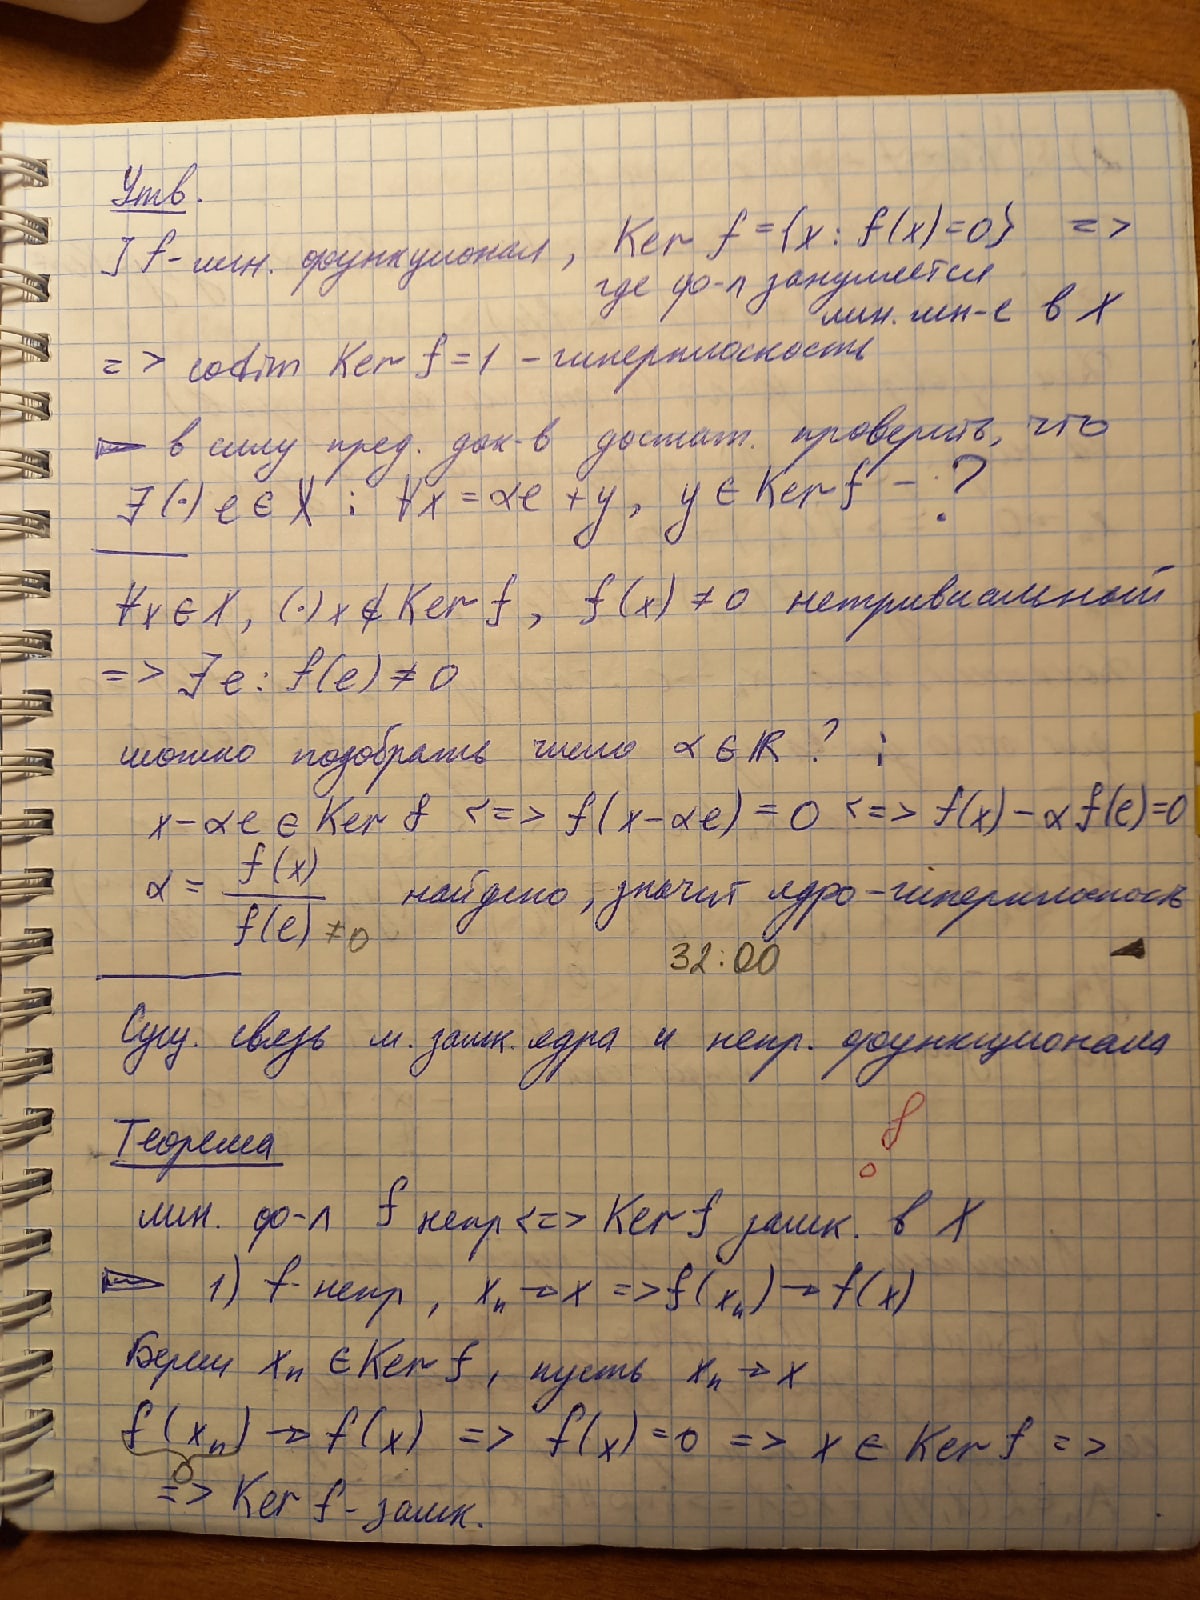 Утв.
] f - лин. функционал, Ker f = {x : f(x) = 0} =>
где ф-л зануляется
лин. мн-е в X
=> codim Ker f = 1 - гиперплоскость
▷ в силу пред. док-в достат. проверить, что
∃ (·) e ∈ X : ∀x = αe + y, y ∈ Ker f - ?
∀x ∈ X, (·) x ∉ Ker f, f(x) ≠ 0 нетривиальной
=> ∃ e : f(e) ≠ 0
можно подобрать число α ∈ ℝ ? :
x - αe ∈ Ker f <=> f(x - αe) = 0 <=> f(x) - α f(e) = 0
α = f(x) / f(e) ≠ 0 найдено, значит ядро - гиперплоскость
32:00 ◀
Сущ. связь м. замк. ядра и непр. функционала
Теорема
лин. ф-л f непр <=> Ker f замк. в X
▷ 1) f - непр, xₙ → x => f(xₙ) → f(x)
Берем xₙ ∈ Ker f, пусть xₙ → x
f(xₙ) → f(x) => f(x) = 0 => x ∈ Ker f =>
0
=> Ker f - замк.